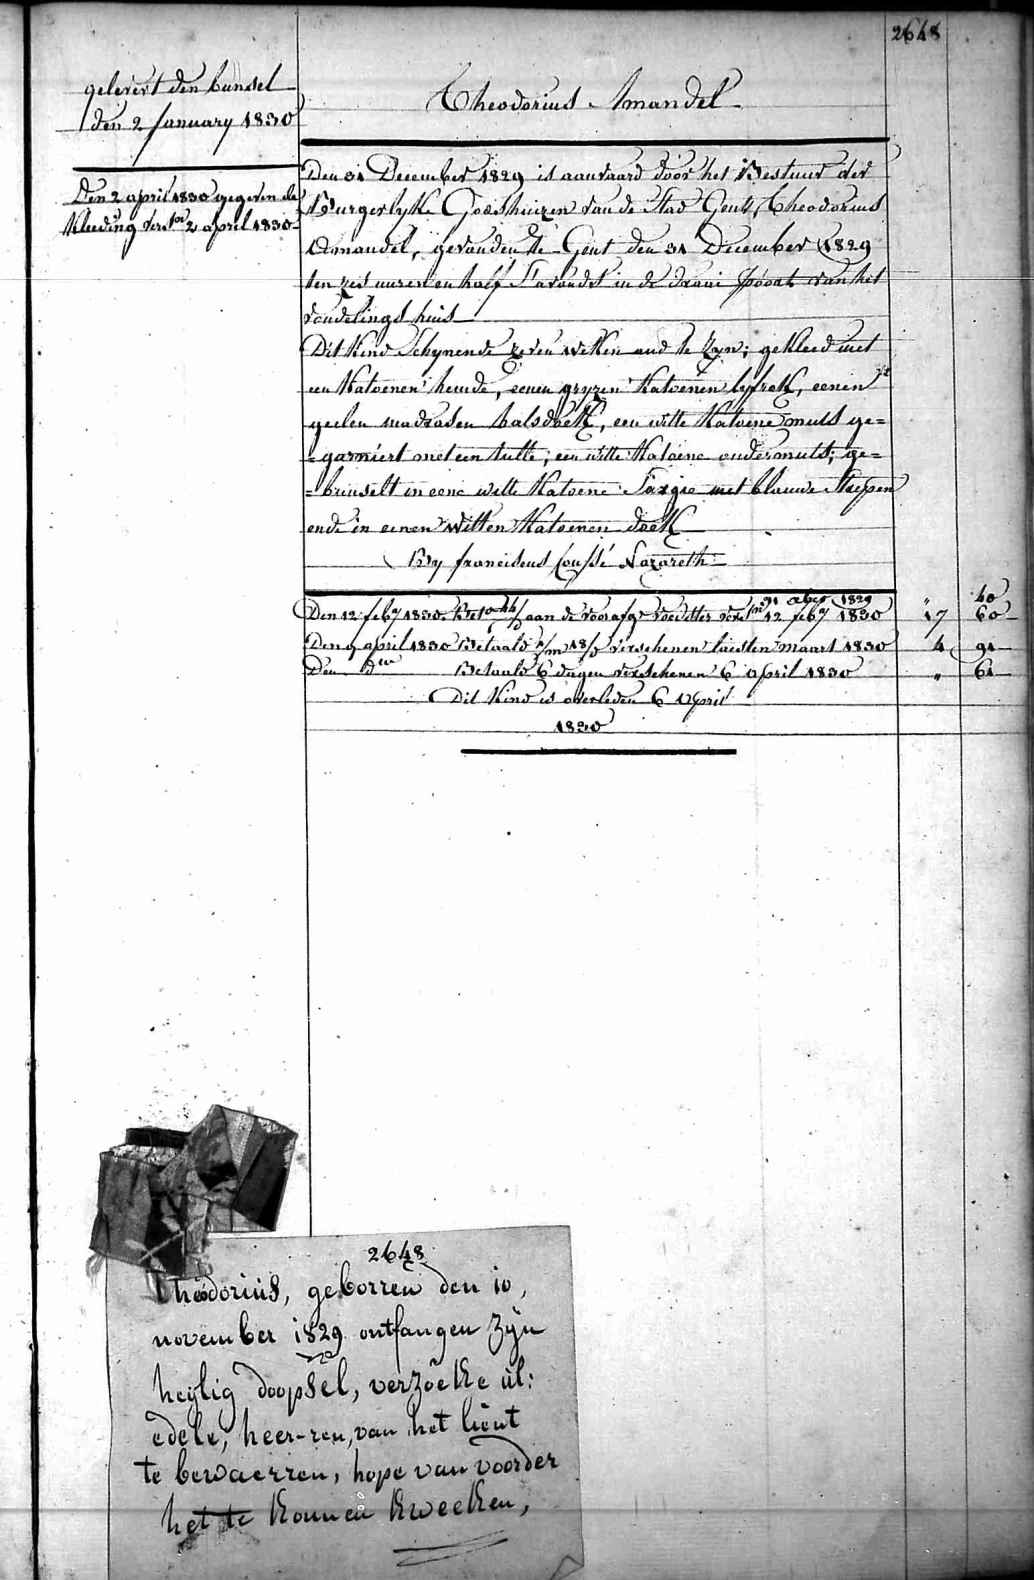 2648
gelevert den bunsel
den 2 January 1830
Den 2 april 1830 gegeven de
Kleeding vers 2 april 1830
Theodorius Amandel
Den 31 December 1829 is aanvaard door het Bestuur der
Burgerlyke Godshuizen van de Stad Gent, Theodorius
Amandel, gevonden te Gent den 31 December 1829
ten zes uuren en half S'avonds in de draai schoof van het
vondelings huis
Dit Kind Schynende zeven weken oud te zyn; gekleed met
een Katoenen hemde, eenen gryzen Katoenen lyfrok, eenen
geelen madrasen halsdoek, een witte Katoene muts ge=
=garniert met een tulle; een witte Katoene ondermuts; ge=
=bunselt in eene witte Katoene Sargie met blauwe Strepen
ende in eenen Witten Katoenen doek
By franciscus Coussé Nazareth
31 xber 1829 " 40
Den 12 feby 1830 Bet aan de voorafge voedster vers 12 feby 1830 17 60
Den 9 april 1830 Betaald verschenen laesten maart 1830 4 91
Den do Betaald 6 dagen verschenen 6 april 1830 " 61
Dit Kind is overleden 6 April
1830
2648
theodorius, geborren den 10,
november 1829 ontfangen zyn
heylig doopsel, verzoeke ul:
edele, heer-ren, van het lient
te bewaerren, hope van voorder
het te konnen kweeken,